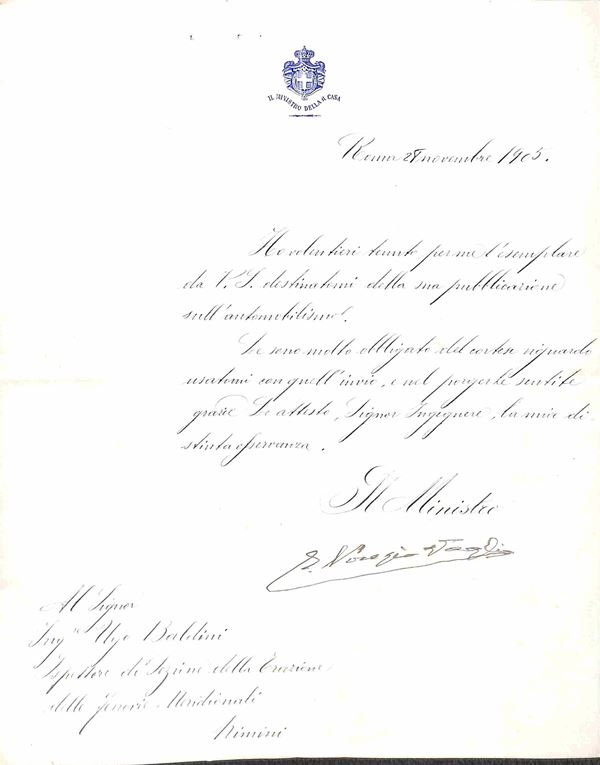 IL MINISTRO DELLA R. CASA
Roma 28 novembre 1905.
Ho volentieri tenuto per me l'esemplare
da V. S. destinatomi della sua pubblicazione
sull'automobilismo.
Le sono molto obbligato del cortese riguardo
usatomi con quell'invio, e nel porgerle sentite
grazie Le attesto, Signor Ingegnere, la mia di-
stinta osservanza.
Il Ministro
Al Signor
Ing.re Ugo Baldini
Ispettore di Sezione della Trazione
delle Ferrovie Meridionali
Rimini